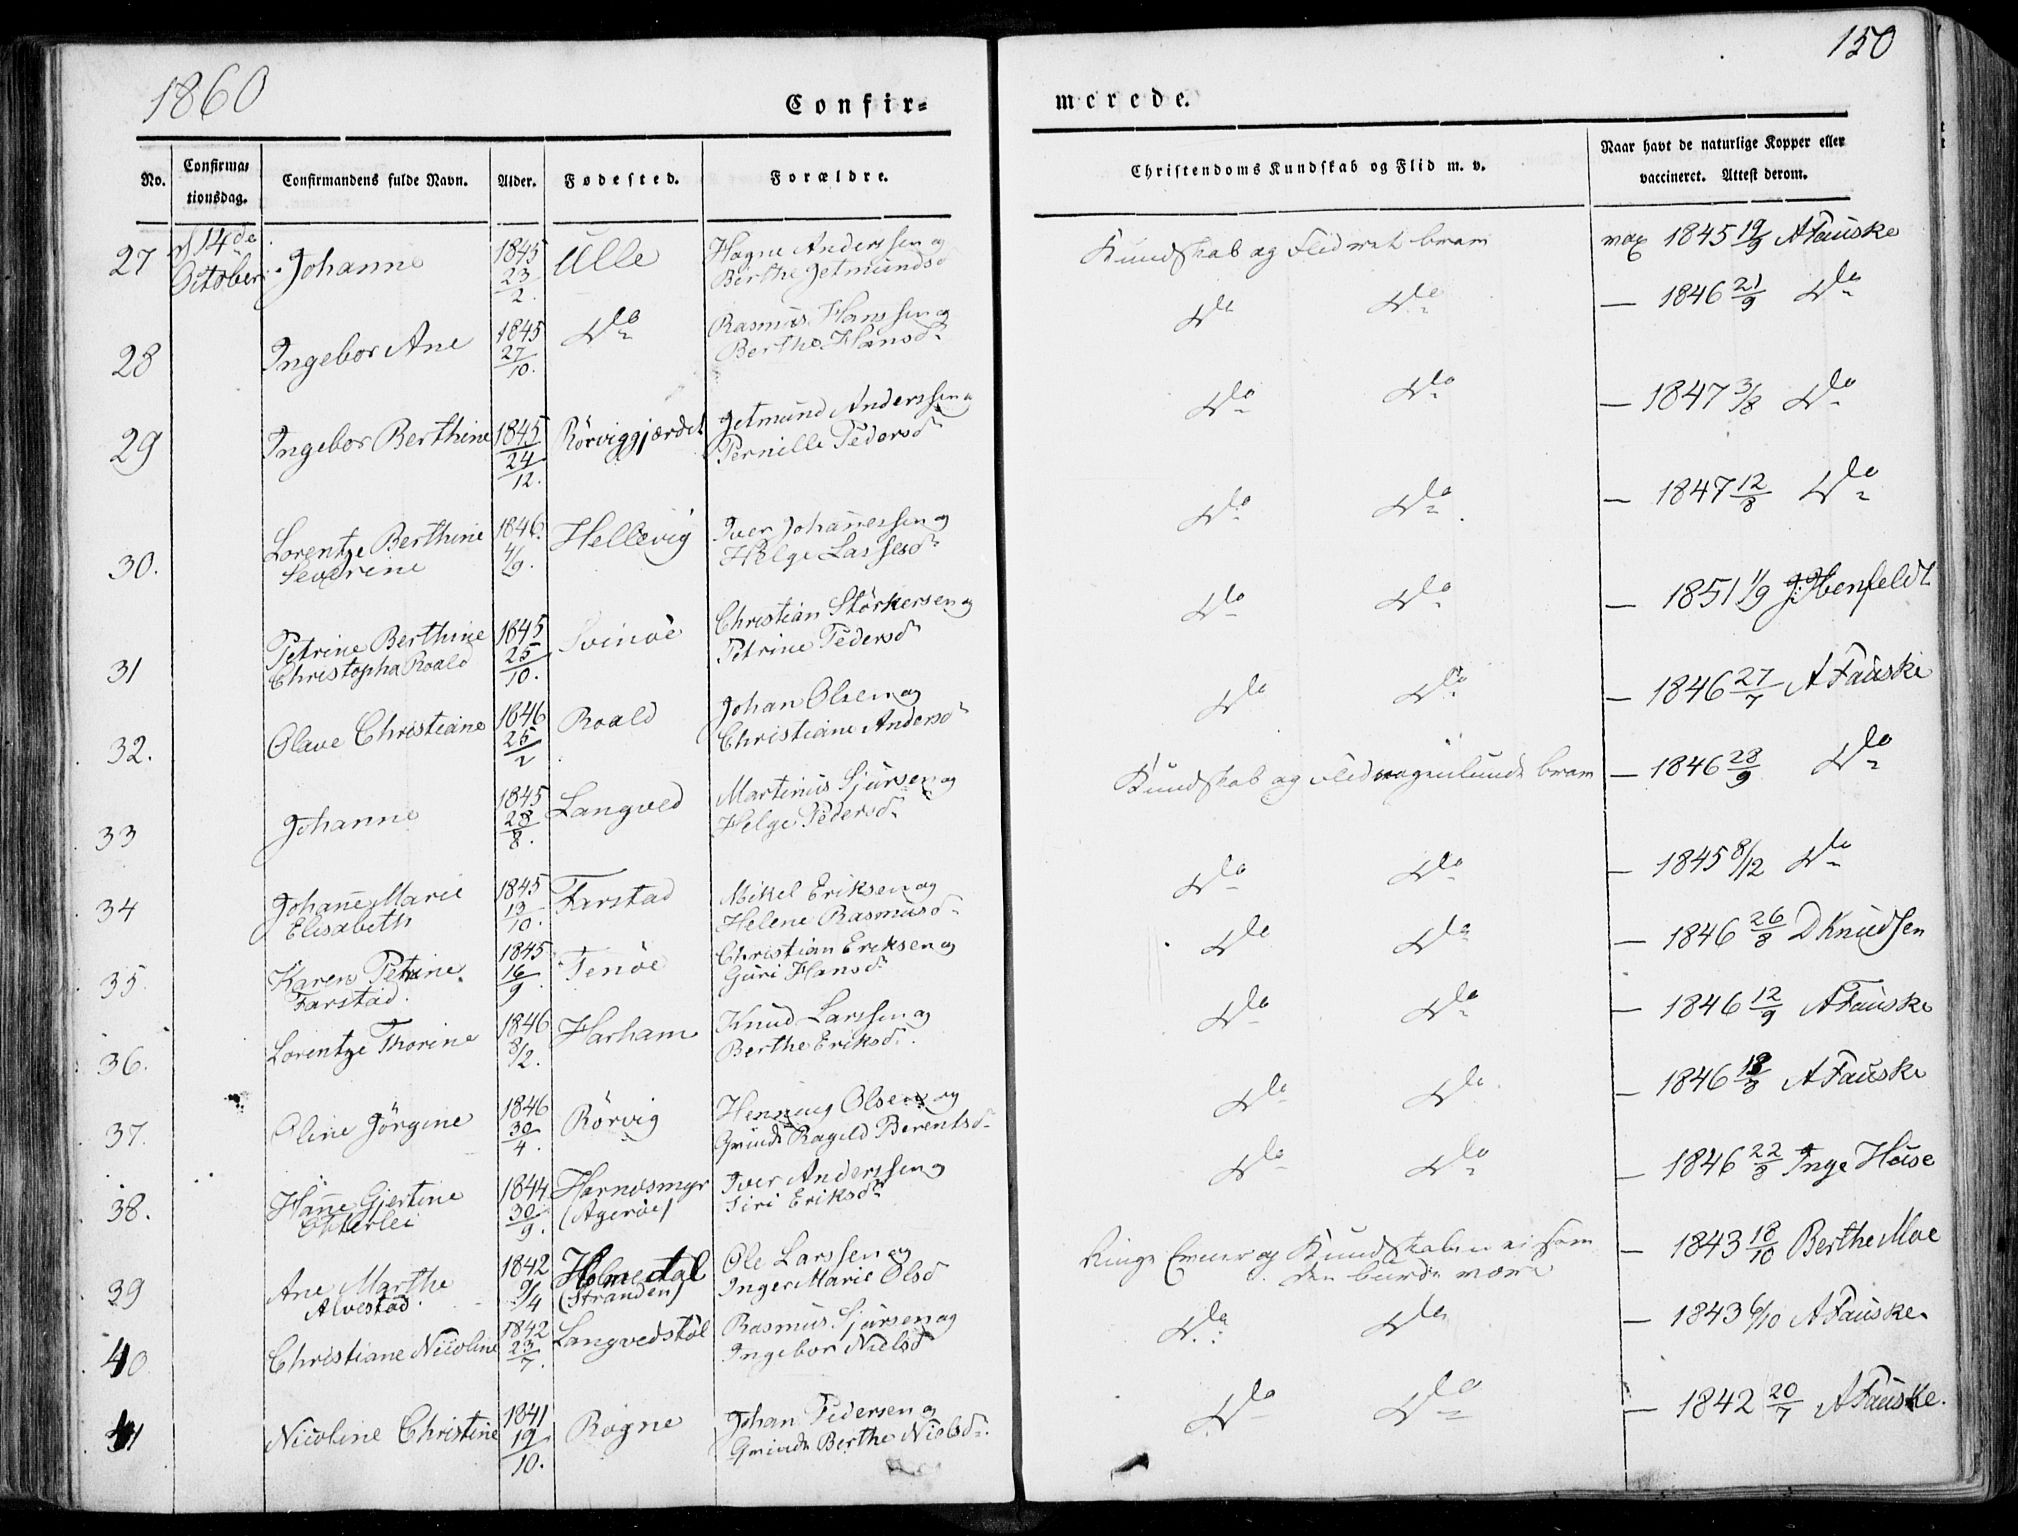 1860
150
Confir=
merede.
No.
Confirma=
tionsdag.
Confirmandens fulde Navn.
Alder.
Fødested.
Forældre.
Christendoms Kundskab og Flid m. v.
Naar havt de naturlige Kopper eller
vaccineret. Attest derom.
27 d 14de October Johanne 1845 23/2. Ulle Hagne Anderssen og
Berthe Jetmundsd
Kundskab og Flid bram vax 1845 19/9 A Fauske
28 Ingebor Ane 1845 27/10. Do Rasmus Hanssen og
Berthe Hansd. Do Do — 1846 21/9 Do
29 Ingebor Berthine 1845 24/12. Rörviggjærdet Jetmund Anderssen og
Pernille Pedersd Do Do — 1847 3/8 Do
30. Lorentze Berthine 1846. 4/9. Hellevig Iver Johan̄essen og
Severine Helge Lassesd. Do Do — 1847 12/8 Do
31 Petrine Berthine 1845 25/10. Svinöe Christian Störkersen og
Christopha Roald Petrine Pedersd Do Do — 1851 1/9 J. Ibenfeldt
32. Olave Christiane 1846 25/2 Roald Johan Olsen og
Christiane Andersd Do Do — 1846 27/7 A Fauske
33 Johanne 1845 28/8. Langved Martinus Sjursen og
Helge Pedersd. Kundskab og Flid bram — 1846 28/9 Do
34 Johan̄e Marie 1845 13/10. Farstad Mikel Eriksen og
Elisabeth Helene Rasmusd. Do Do — 1845 8/12 Do
35. Karen Petrine 1845 16/9. Fenöe Christian Eriksen og
Farstad. Guri Hansd. Do Do — 1846 26/8 D Knudsen
36. Lorentze Thorine 1846 8/2. Harham Knud Larssen og
Berthe Eriksd. Do Do — 1846 12/9 A Fauske
37. Oline Jörgine 1846 30/4. Rörvig Henning Olsen og
Gvinde Ragild Berentsd. Do Do — 1846 18/8 A Fauske
38. Han̄e Gjertine 1844 30/9. Harnesmyr Iver Anderssen og
Otterlei (Ageröe) Siri Eriksd. Do Do — 1846 22/8 Inge Huse
39 Ane Marthe 1842 9/4 Holmedal Ole Larssen og
Alvestad. (Stranden) Inger Marie Olsd Ringe Evner og Kundskaben ei som
den burde være — 1843 18/10 Berthe Moe
40 Christiane Nicoline 1842 23/7. Langvedstöl Rasmus Sjursen og
Ingebor Nielsd Do Do — 1843 6/10 A Fauske
41 Nicoline Christine 1841 19/10. Rogne Johan Pedersen og
Gvinde Berthe Nielsd. Do Do — 1842 20/7 A Fauske.